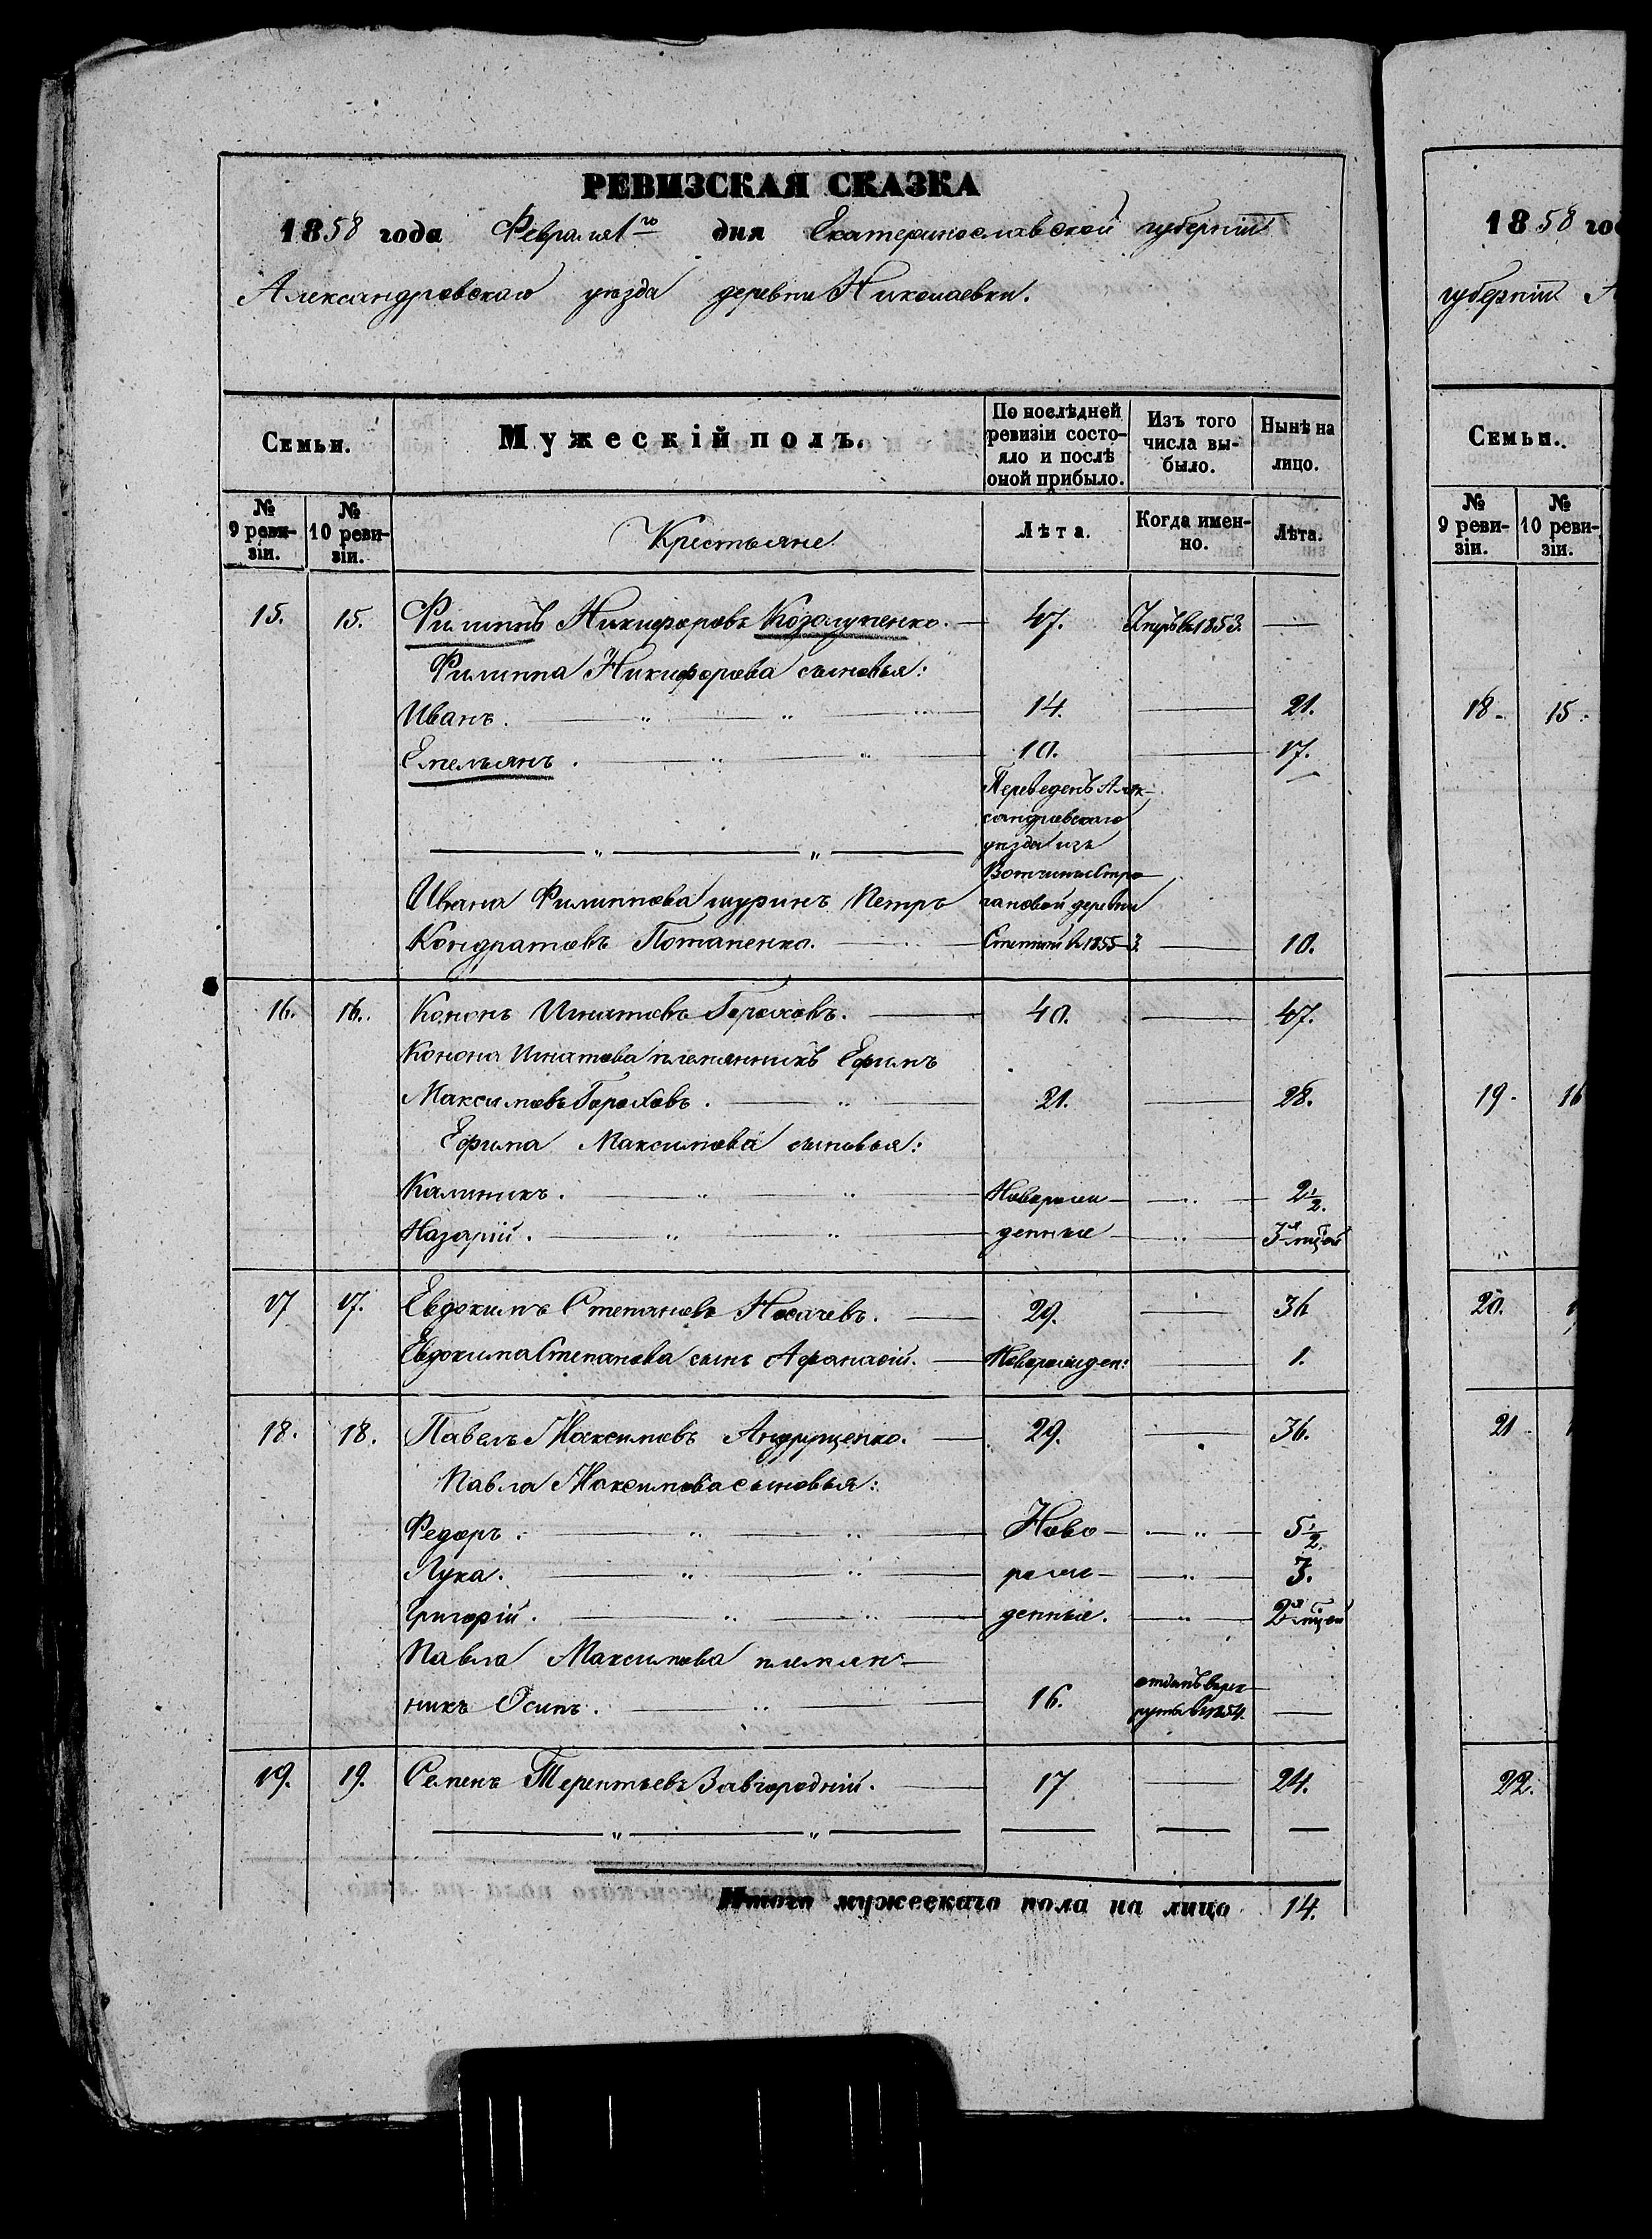 РЕВИЗСКАЯ СКАЗКА
1858 года Февраля 1го дня Екатеринославской губернiи
Александровскаго уѣзда деревни Николаевки.
Семьи.
Мужескiй полъ.
По послѣдней ревизiи состояло и послѣ оной прибыло.
Изъ того числа выбыло.
Нынѣ на лицо.
№ 9 ревизiи.
№ 10 ревизiи.
Крестьяне
Лѣта.
Когда именно.
Лѣта.
15. 15. Филиппъ Никифоровъ Козолупенко. 47. Умръ въ 1853.
Филиппа Никифорова сыновья:
Иванъ. 14. 21.
Емельянъ. 10. 17.
Переведенъ Алек-
сандровскаго
уѣзда изъ
Вотчины Стро-
Ивана Филиппова шуринъ Петръ гановой деревни
Кондратовъ Потапенко. Степной въ 1855 10.
16. 16. Кононъ Игнатовъ Гороховъ. 40. 47.
Конона Игнатова племянникъ Ефимъ
Максимовъ Гороховъ. 21. 28.
Ефима Максимова сыновья:
Калиникъ. Новорож- 2½.
Назарiй. денные 3х мѣсяц
17 17. Евдокимъ Степановъ Носачевъ. 29. 36
Евдокима Степанова сынъ Афанасiй. Новорожден: 1.
18. 18. Павелъ Максимовъ Андрущенко. 29. 36.
Павла Максимова сыновья:
Федоръ. Ново- 5½.
Лука. рож- 3.
Григорiй. денные. 2х мѣсяц
Павла Максимова племян-
никъ Осипъ. 16. отданъ въ рек-
руты въ 1854.
19. 19. Семенъ Терентьевъ Завгороднiй. 17 24.
Итого мужескаго пола на лицо 14.
1858 го
губернiи А
Семьи.
№ 9 ревизiи.
№ 10 ревизiи.
18. 15.
19. 16
20.
21
22.